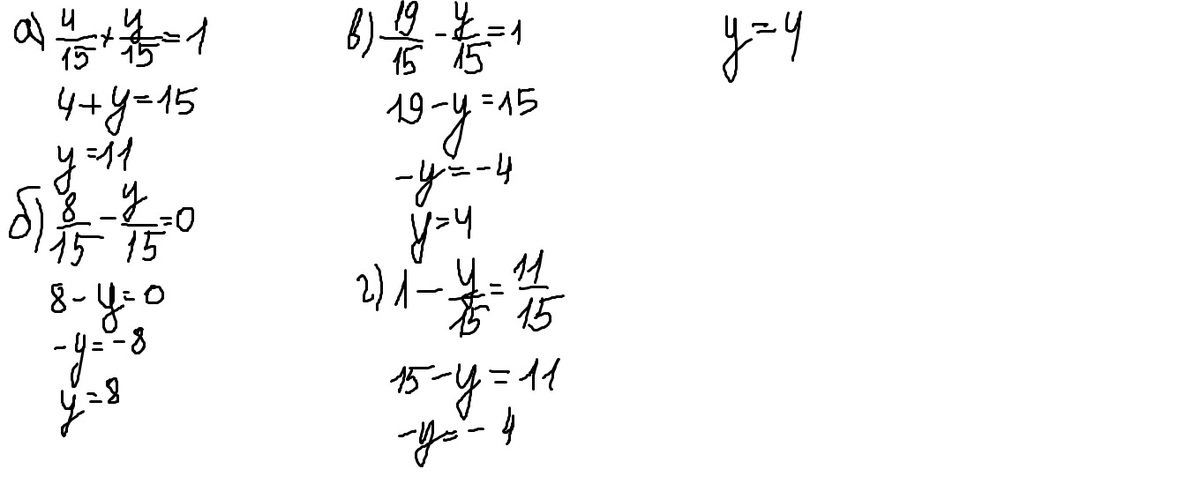 а) 4/15 + y/15 = 1
4 + y = 15
y = 11
б) 8/15 - y/15 = 0
8 - y = 0
-y = -8
y = 8
в) 19/15 - y/15 = 1
19 - y = 15
-y = -4
y = 4
г) 1 - y/15 = 11/15
15 - y = 11
-y = -4
y = 4